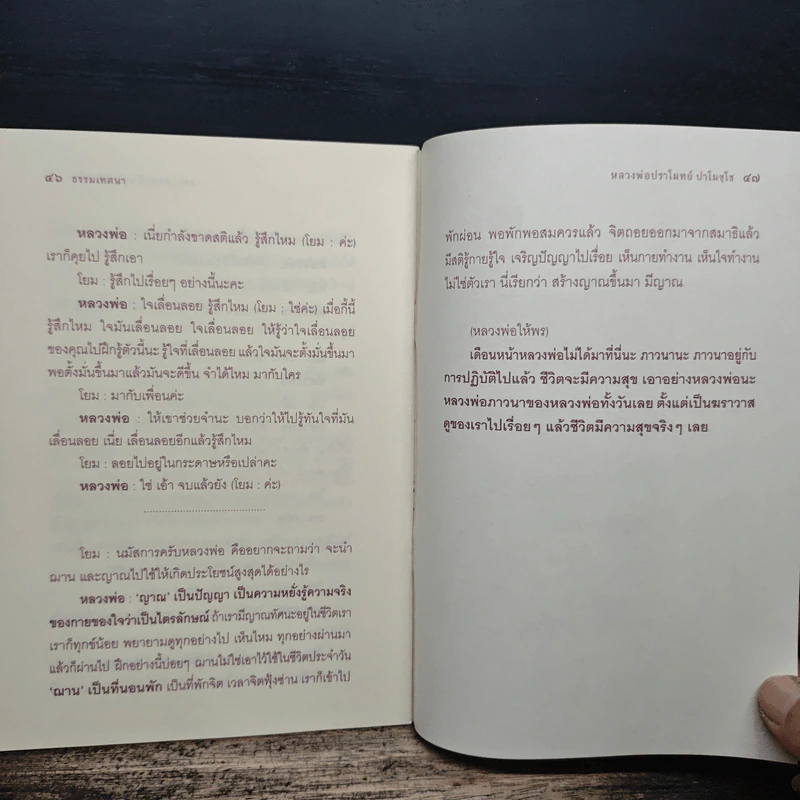 ๔๖ ธรรมเทศนา
หลวงพ่อ : เนี่ยกำลังขาดสติแล้ว รู้สึกไหม (โยม : ค่ะ)
เราก็คุยไป รู้สึกเอา
โยม : รู้สึกไปเรื่อยๆ อย่างนี้นะคะ
หลวงพ่อ : ใจเลื่อนลอย รู้สึกไหม (โยม : ใช่ค่ะ) เมื่อกี้นี้
รู้สึกไหม ใจมันเลื่อนลอย ใจเลื่อนลอย ให้รู้ว่าใจเลื่อนลอย
ของคุณไปฝึกรู้ตัวนี้นะ รู้ใจที่เลื่อนลอย แล้วใจมันจะตั้งมั่นขึ้นมา
พอตั้งมั่นขึ้นมาแล้วมันจะดีขึ้น จำได้ไหม มากับใคร
โยม : มากับเพื่อนค่ะ
หลวงพ่อ : ให้เขาช่วยจำนะ บอกว่าให้ไปรู้ทันใจที่มัน
เลื่อนลอย เนี่ย เลื่อนลอยอีกแล้วรู้สึกไหม
โยม : ลอยไปอยู่ในกระดาษหรือเปล่าคะ
หลวงพ่อ : ใช่ เอ้า จบแล้วยัง (โยม : ค่ะ)
โยม : นมัสการครับหลวงพ่อ คืออยากจะถามว่า จะนำ
ฌาน และญาณไปใช้ให้เกิดประโยชน์สูงสุดได้อย่างไร
หลวงพ่อ : 'ญาณ' เป็นปัญญา เป็นความหยั่งรู้ความจริง
ของกายของใจว่าเป็นไตรลักษณ์ ถ้าเรามีญาณทัศนะอยู่ในชีวิตเรา
เราก็ทุกข์น้อย พยายามดูทุกอย่างไป เห็นไหม ทุกอย่างผ่านมา
แล้วก็ผ่านไป ฝึกอย่างนี้บ่อยๆ ฌานไม่ใช่เอาไว้ใช้ในชีวิตประจำวัน
'ฌาน' เป็นที่นอนพัก เป็นที่พักจิต เวลาจิตฟุ้งซ่าน เราก็เข้าไป
หลวงพ่อปราโมทย์ ปาโมชฺโช ๔๗
พักผ่อน พอพักพอสมควรแล้ว จิตถอยออกมาจากสมาธิแล้ว
มีสติรู้กายรู้ใจ เจริญปัญญาไปเรื่อย เห็นกายทำงาน เห็นใจทำงาน
ไม่ใช่ตัวเรา นี่เรียกว่า สร้างญาณขึ้นมา มีญาณ
(หลวงพ่อให้พร)
เดือนหน้าหลวงพ่อไม่ได้มาที่นี่นะ ภาวนานะ ภาวนาอยู่กับ
การปฏิบัติไปแล้ว ชีวิตจะมีความสุข เอาอย่างหลวงพ่อนะ
หลวงพ่อภาวนาของหลวงพ่อทั้งวันเลย ตั้งแต่เป็นฆราวาส
ดูของเราไปเรื่อยๆ แล้วชีวิตมีความสุขจริงๆ เลย